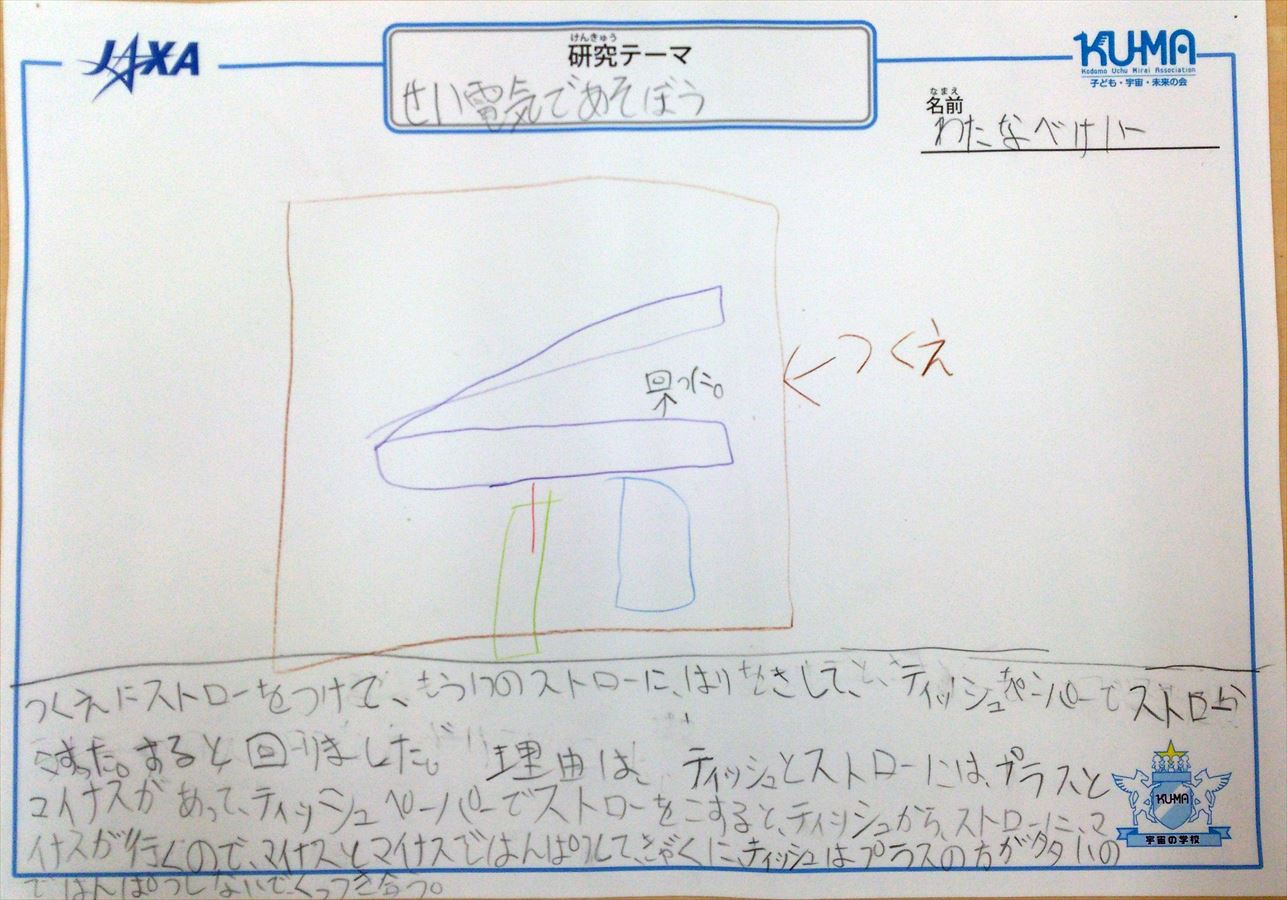 JAXA
けんきゅう
研究テーマ
せい電気であそぼう
KU-MA
Kodomo Uchu Mirai Association
子ども・宇宙・未来の会
なまえ
名前
わたなべけい
回った。
↑
←つくえ
つくえにストローをつけて、もう1つのストローに、はりをさして、と、ティッシュペーパーでストローを
こすった。すると回りました。理由は、ティッシュとストローには、プラスと
マイナスがあって、ティッシュペーパーでストローをこすると、ティッシュから、ストローに、マ
イナスが行くので、マイナスとマイナスではんぱつして、ぎゃくに、ティッシュはプラスの方が多いの
ではんぱつしないで、くっつき合う。
KU-MA
宇宙の学校